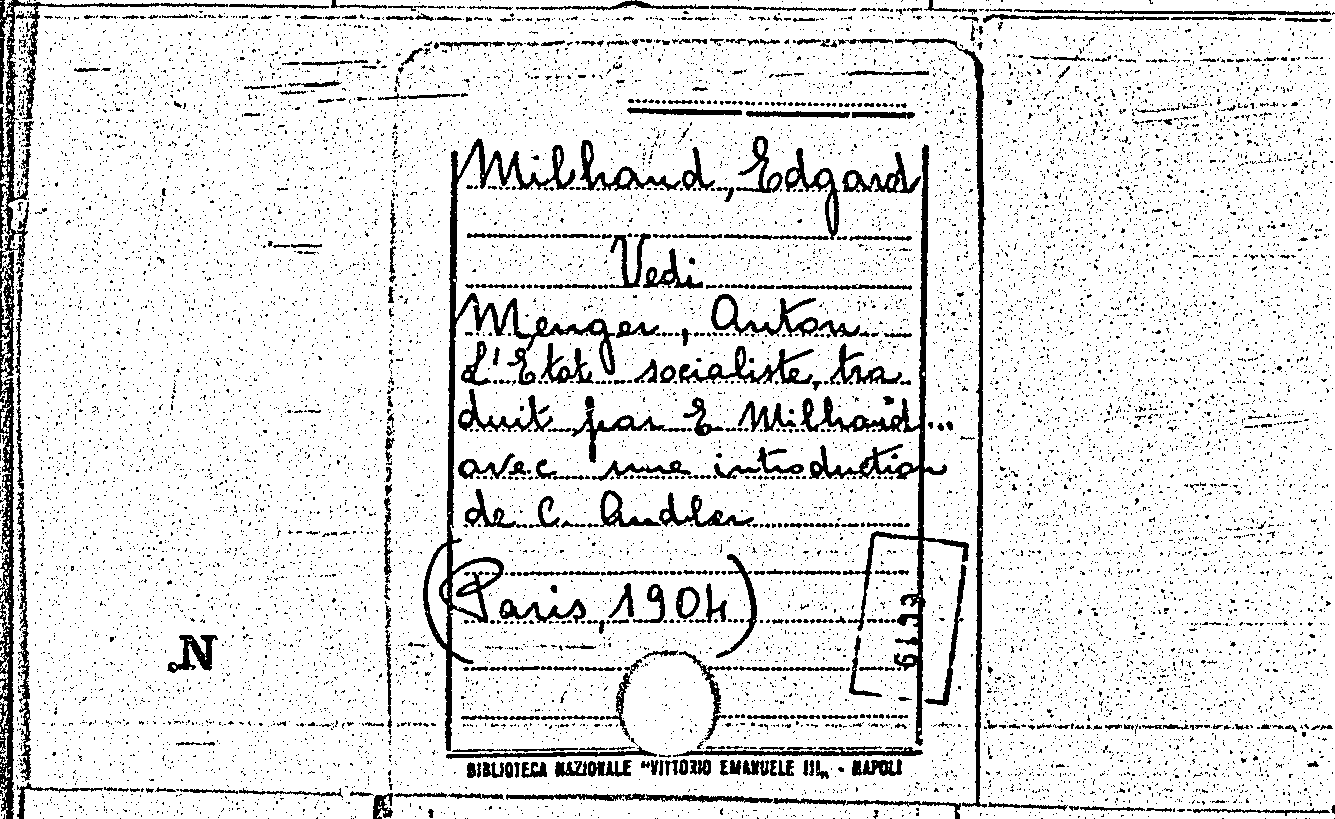 Milhaud, Edgard
Vedi
Menger, Anton
L'Etat socialiste, tra
duit par E Milhaud...
avec une introduction
de C. Andler
(Paris, 1904)
N.
BIBLIOTECA NAZIONALE "VITTORIO EMANUELE III" - NAPOLI